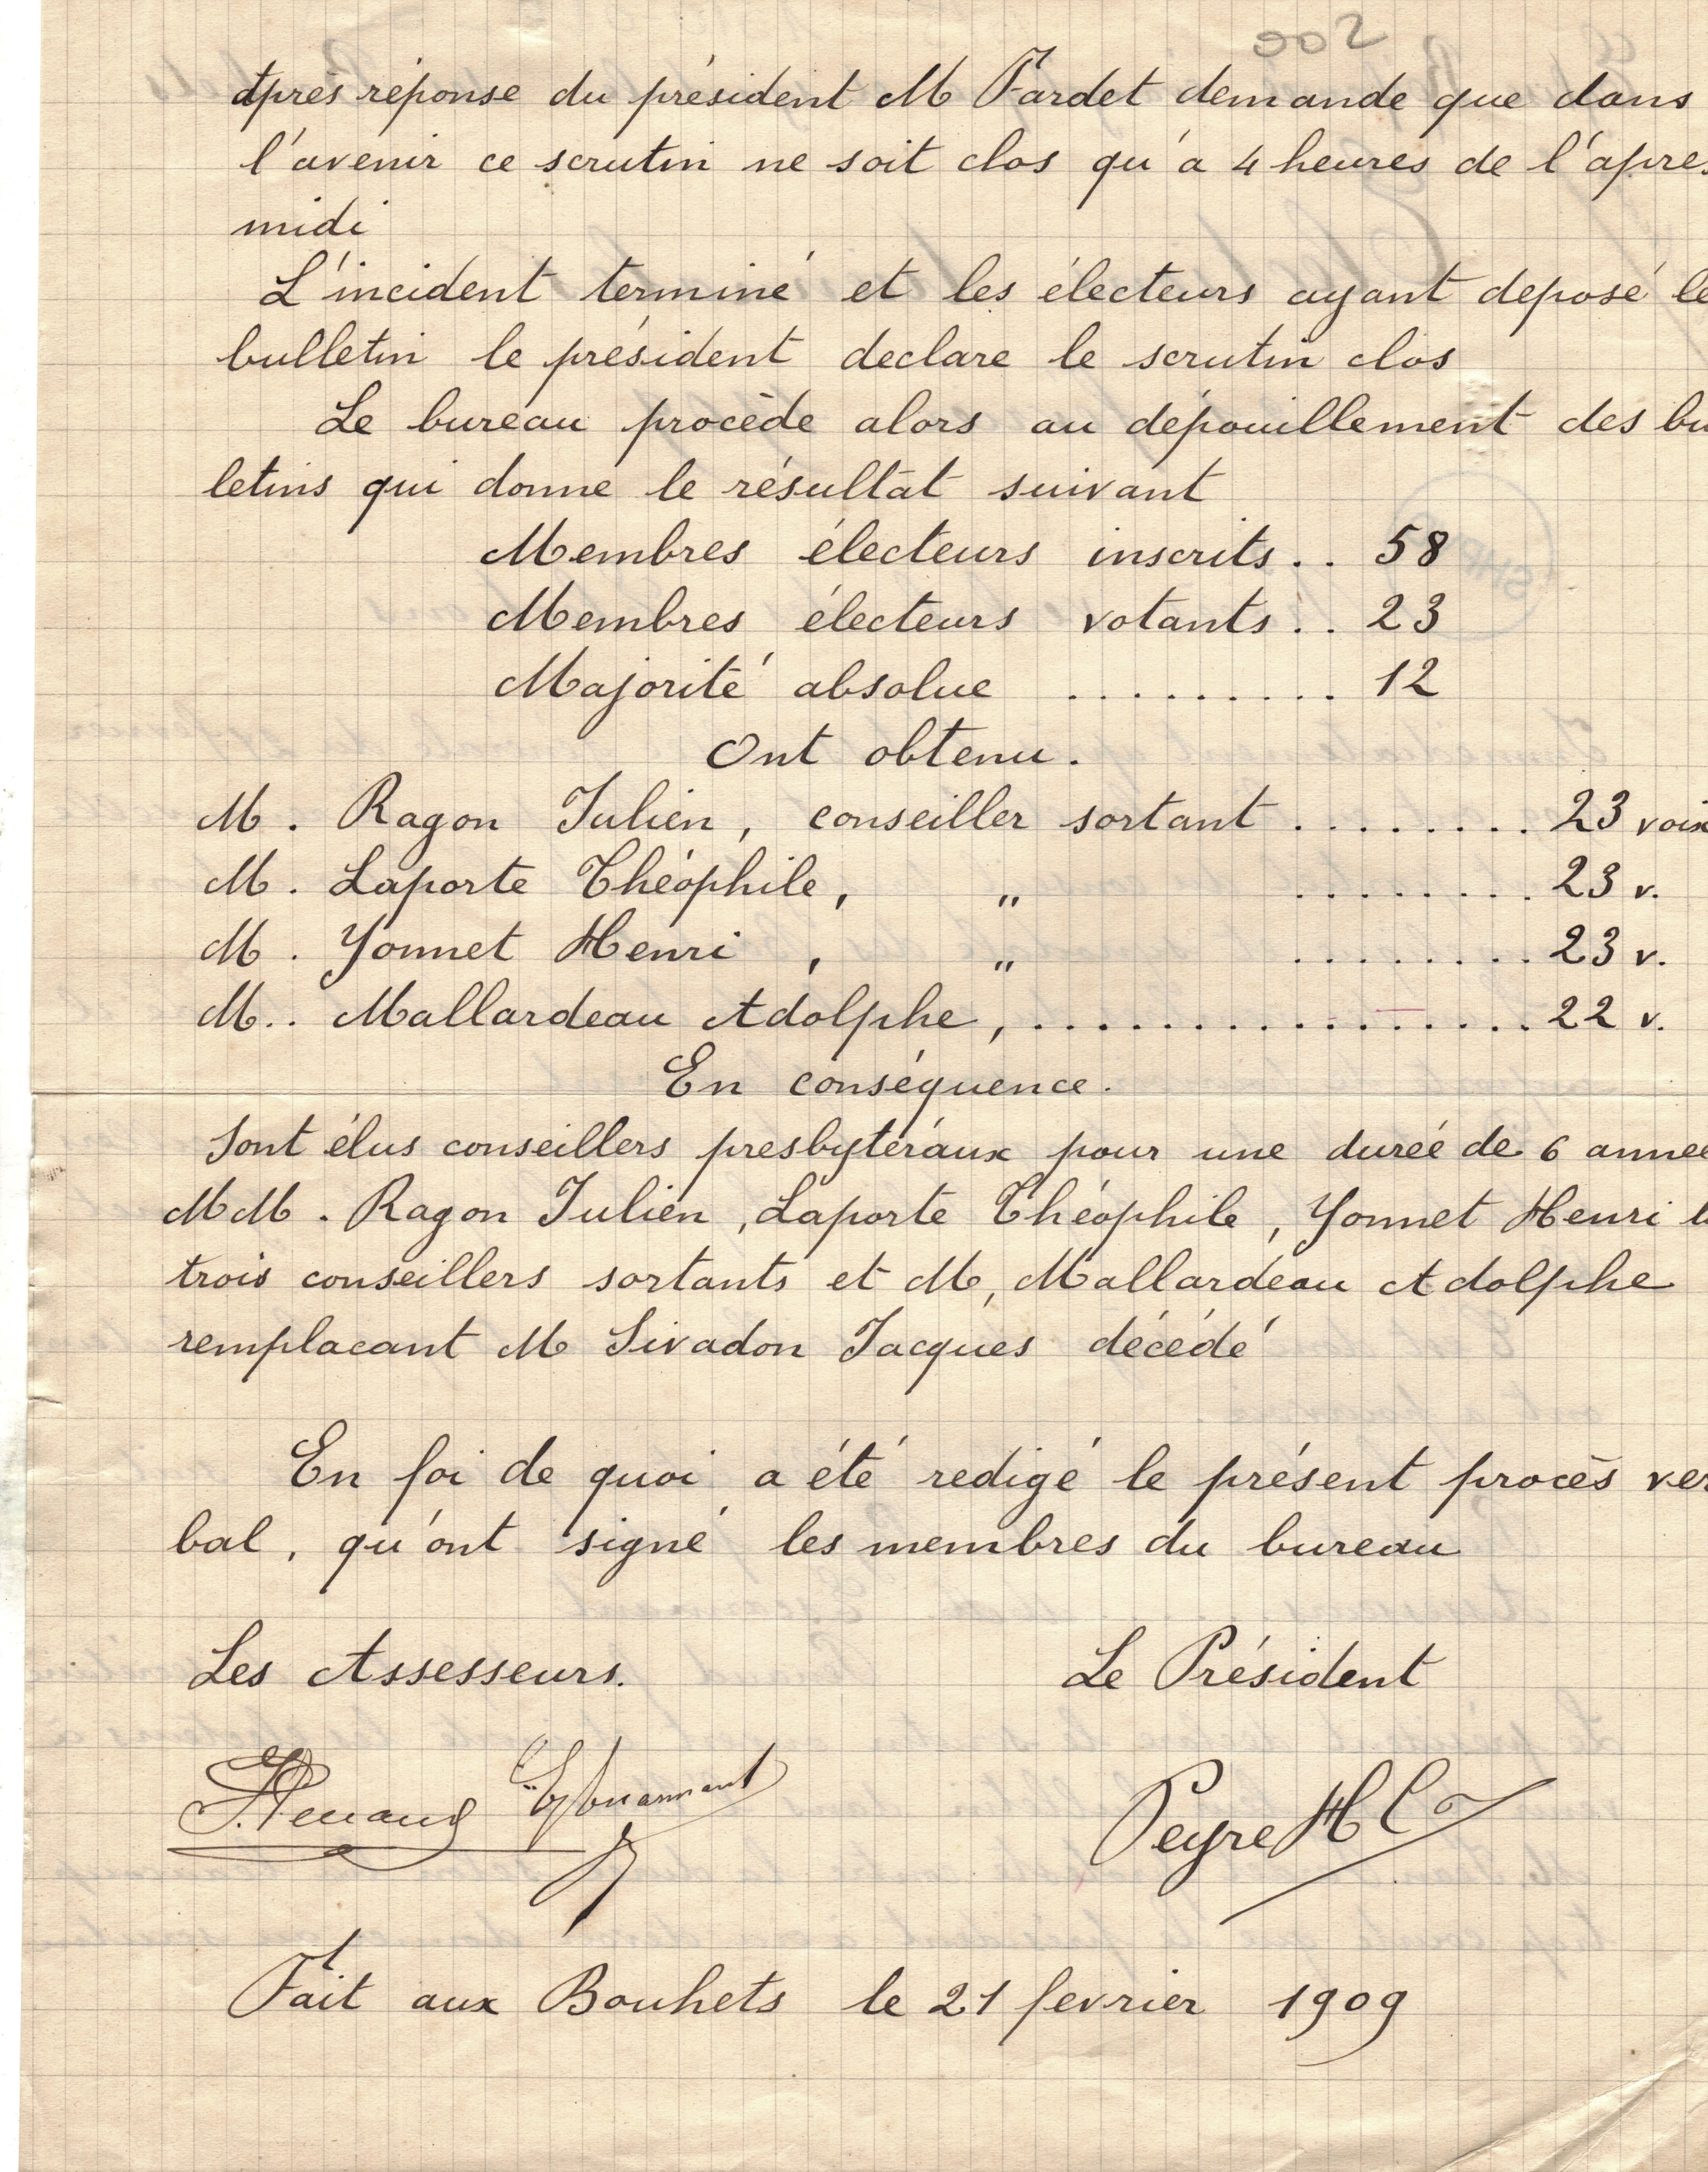 après réponse du président M Fardet demande que dans
l'avenir ce scrutin ne soit clos qu'à 4 heures de l'après
midi
L'incident terminé et les électeurs ayant deposé le
bulletin le président declare le scrutin clos
Le bureau procède alors au dépouillement des bu
letins qui donne le résultat suivant
Membres électeurs inscrits .. 58
Membres électeurs votants .. 23
Majorité absolue ......... 12
Ont obtenu.
M. Ragon Julien, conseiller sortant ........ 23 voix
M. Laporte Théophile, " ........ 23 v.
M. Yonnet Henri, " ........ 23 v.
M.. Mallardeau Adolphe, ................. 22 v.
En conséquence.
Sont élus conseillers presbytéraux pour une dureé de 6 anneé
MM. Ragon Julien, Laporte Théophile, Yonnet Henri le
trois conseillers sortants et M, Mallardeau Adolphe
remplacant M Sivadon Jacques décédé
En foi de quoi a été redigé le présent procès ver
bal, qu'ont signé les membres du bureau
Les Assesseurs. Le Président
Peyre H
Fait aux Bouhets le 21 fevrier 1909